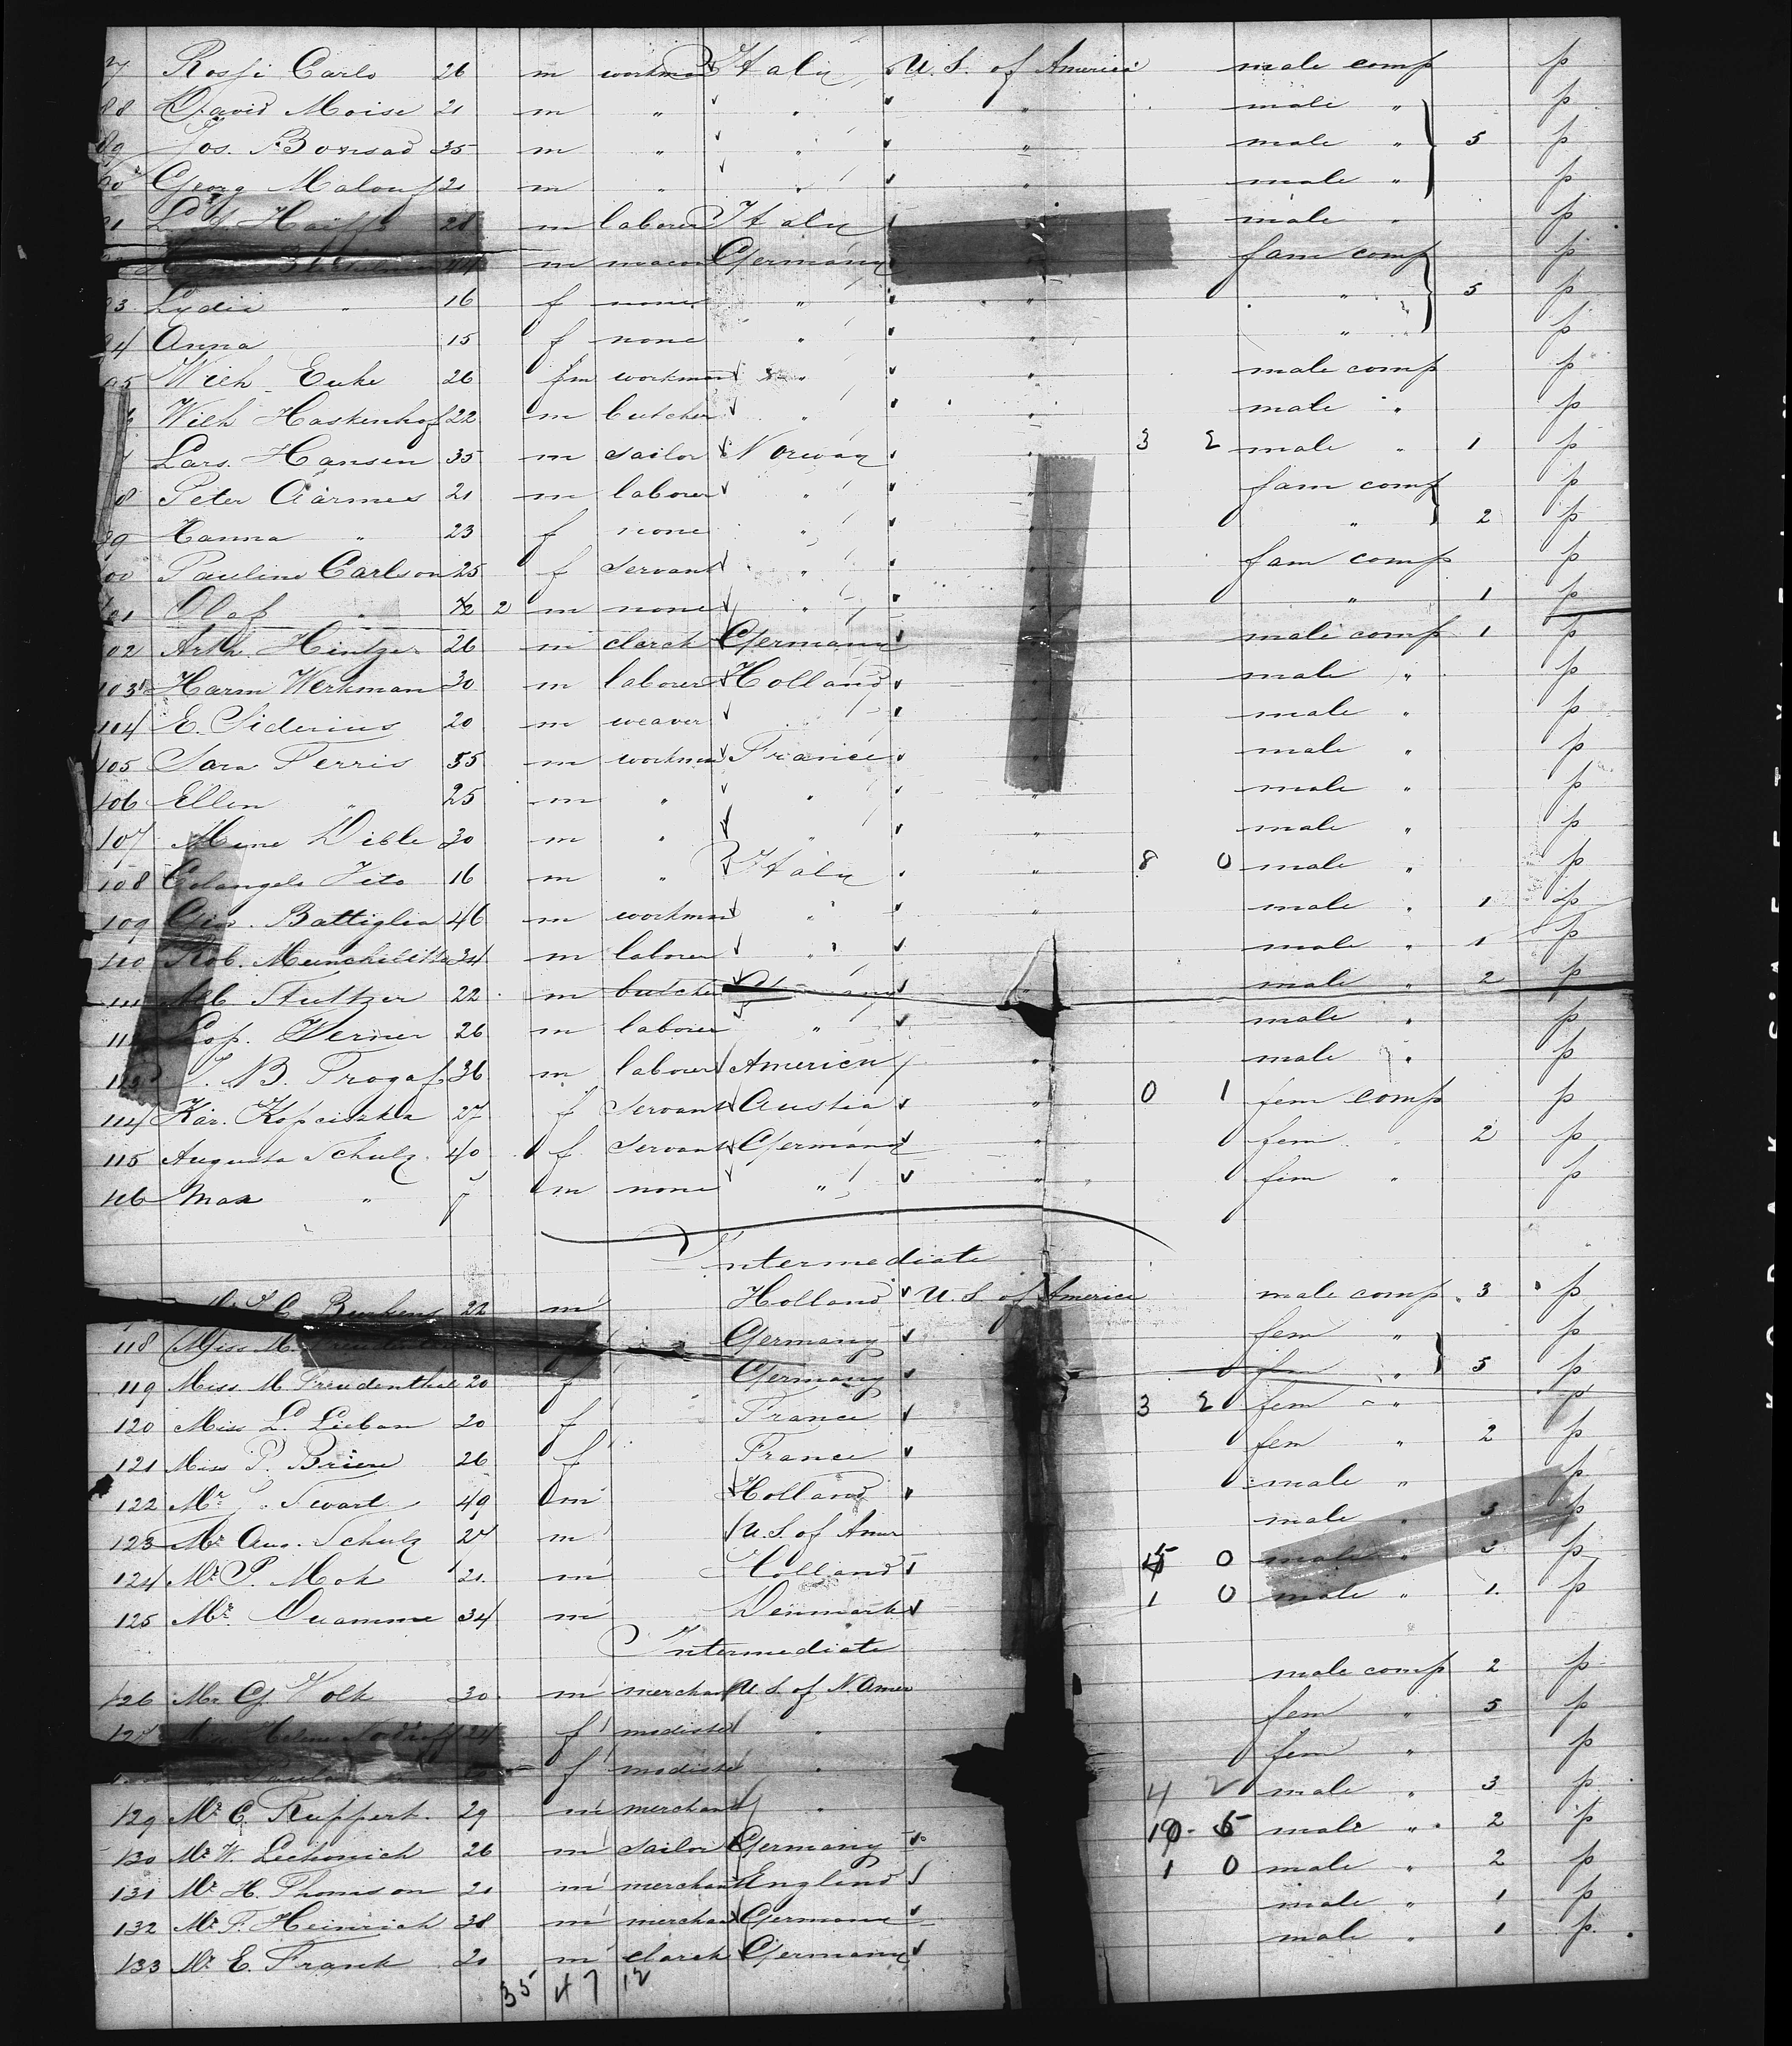 7 Rossi Carlo 26 m workman Italy U.S. of America male comp p
88 David Moise 21 m " " " male " p
89 Jos. Bonsad 35 m " " " male " 5 p
90 Georg Malouf 21 m " " " male " p
91 Ld. Haiffs 21 m laborer Italy male " p
m Germany fam comp p
93 Lydia " 16 f none " " " 5 p
94 Anna 15 f none " " " p
95 Wilh Euke 26 m workman " " male comp p
Wilh Haskenhof 22 m butcher " " male " p
Lars. Hansen 35 m sailor Norway " 3 2 male " 1 p
8 Peter Aarmes 21 m laborer " " fam comp p
99 Hanna " 23 f none " " " 2 p
00 Pauline Carlson 25 f servant " " fam comp p
101 Olaf " 2 m none " " " 1 p
02 Arth. Hintze 26 m clerck Germany male comp 1 p
103 Harm Werkman 30 m laborer Holland male " p
104 E. Siderius 20 m weaver male " p
105 Sara Ferris 35 m workman France male " p
106 Ellen " 25 m " " " male " p
107 Mine Dible 30 m " " " male " p
108 Colangelo Vito 16 m " Italy " 8 0 male " p
109 Gio. Battiglia 46 m workman " " male " 1 p
110 Rob. 34 m laborer " male " 1 p
111 Stultzer 22 m butcher Germany male " 2 p
11 Werner 26 m laborer " male " p
J. B. Trogaf 36 m laborer America " male " p
114 Kar. Kopciska 27 f servant Austia " 0 1 fem comp p
115 Augusta Schulz 40 f servant Germany " fem " 2 p
116 Max " 7 m none " " fem " p
Intermediate
22 m Holland U.S. of America male comp 3 p
118 Miss M. Germany fem " p
119 Miss M Freudenthal 20 f Germany fem " 5 p
120 Miss L. Lieban 20 f France 3 2 fem " p
121 Miss P. Briere 26 f France fem " 2 p
122 Mr. Swart 49 m Holland male " p
123 Mr Aug. Schulz 27 m U.S. of Amer male " 3 p
124 Mr P. Mok 21 m Holland 0 male " 3 p
125 Mr. Duamme 34 m Denmark 1 0 male " 1 p
Intermediate
126 Mr G. Volk 30 m merchant U.S. of N. Amer male comp 2 p
127 Helene 24 f modiste " fem " 5 p
Paula f modiste " fem " p
129 Mr C. Ruppert 29 m merchant " 4 2 male " 3 p
130 Mr W. Lechonich 26 m sailor Germany male " 2 p
131 Mr H. Thomson 21 m merchant England 1 0 male " 2 p
132 Mr F. Heinrich 38 m merchant Germany male " 1 p
133 Mr E. Frank 20 m clerck Germany male " 1 p
35 47 12